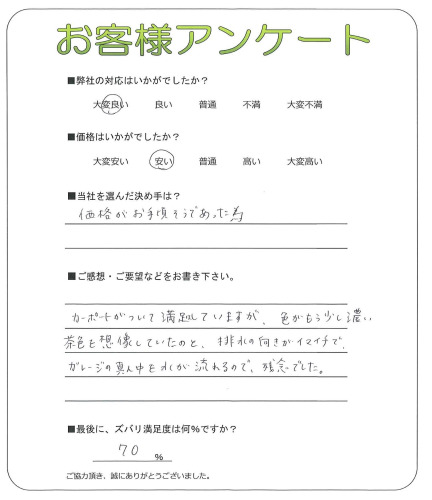 お客様アンケート
■弊社の対応はいかがでしたか？
大変良い　良い　普通　不満　大変不満
■価格はいかがでしたか？
大変安い　安い　普通　高い　大変高い
■当社を選んだ決め手は？
価格がお手頃そうであった為
■ご感想・ご要望などをお書き下さい。
カーポートがついて満足していますが、色がもう少し濃い
茶色を想像していたのと、排水の向きがイマイチで、
ガレージの真ん中を水が流れるので、残念でした。
■最後に、ズバリ満足度は何%ですか？
70 %
ご協力頂き、誠にありがとうございました。